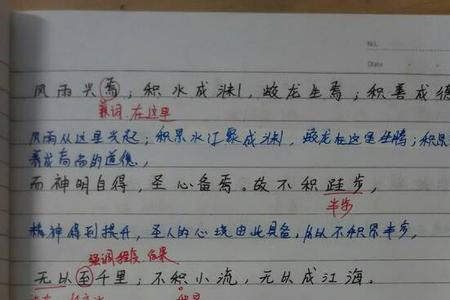 No.
Date
风雨兴焉；积水成渊，蛟龙生焉；积善成德
兼词 在这里
风雨从这里兴起；积累水汇聚成渊，蛟龙在这里生腾；积累
高尚的道德，
而神明自得，圣心备焉。故不积跬步，
半步
精神得到提升，圣人的心境由此具备，所以不积累半步，
强调程度、结果
无以至千里；不积小流，无以成江海。